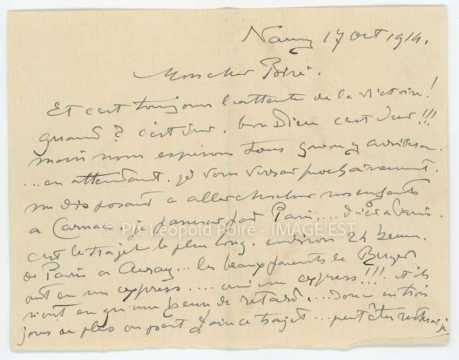 Nancy 17 Oct 1914.
Mon cher Poiré.
Et c'est toujours l'attente de la victoire!
quand? c'est dur, bon Dieu c'est dur!!!
mais nous espérons tous qu'on y arrivera
... en attendant, je vous verrai prochainement.
me disposant a aller chercher mes enfants
a Carnac, je passerai par Paris ... d'ici à
c'est le trajet le plus long. environ 24 heures
de Paris a Auray... les beaux parents de Berger
ont eu un express .... oui un express!!! et ils
n'ont eu qu'une heure de retard ... donc en trois
jours au plus on peut faire ce trajet ... peut être
Ph. Léopold Poiré - IMAGE'EST